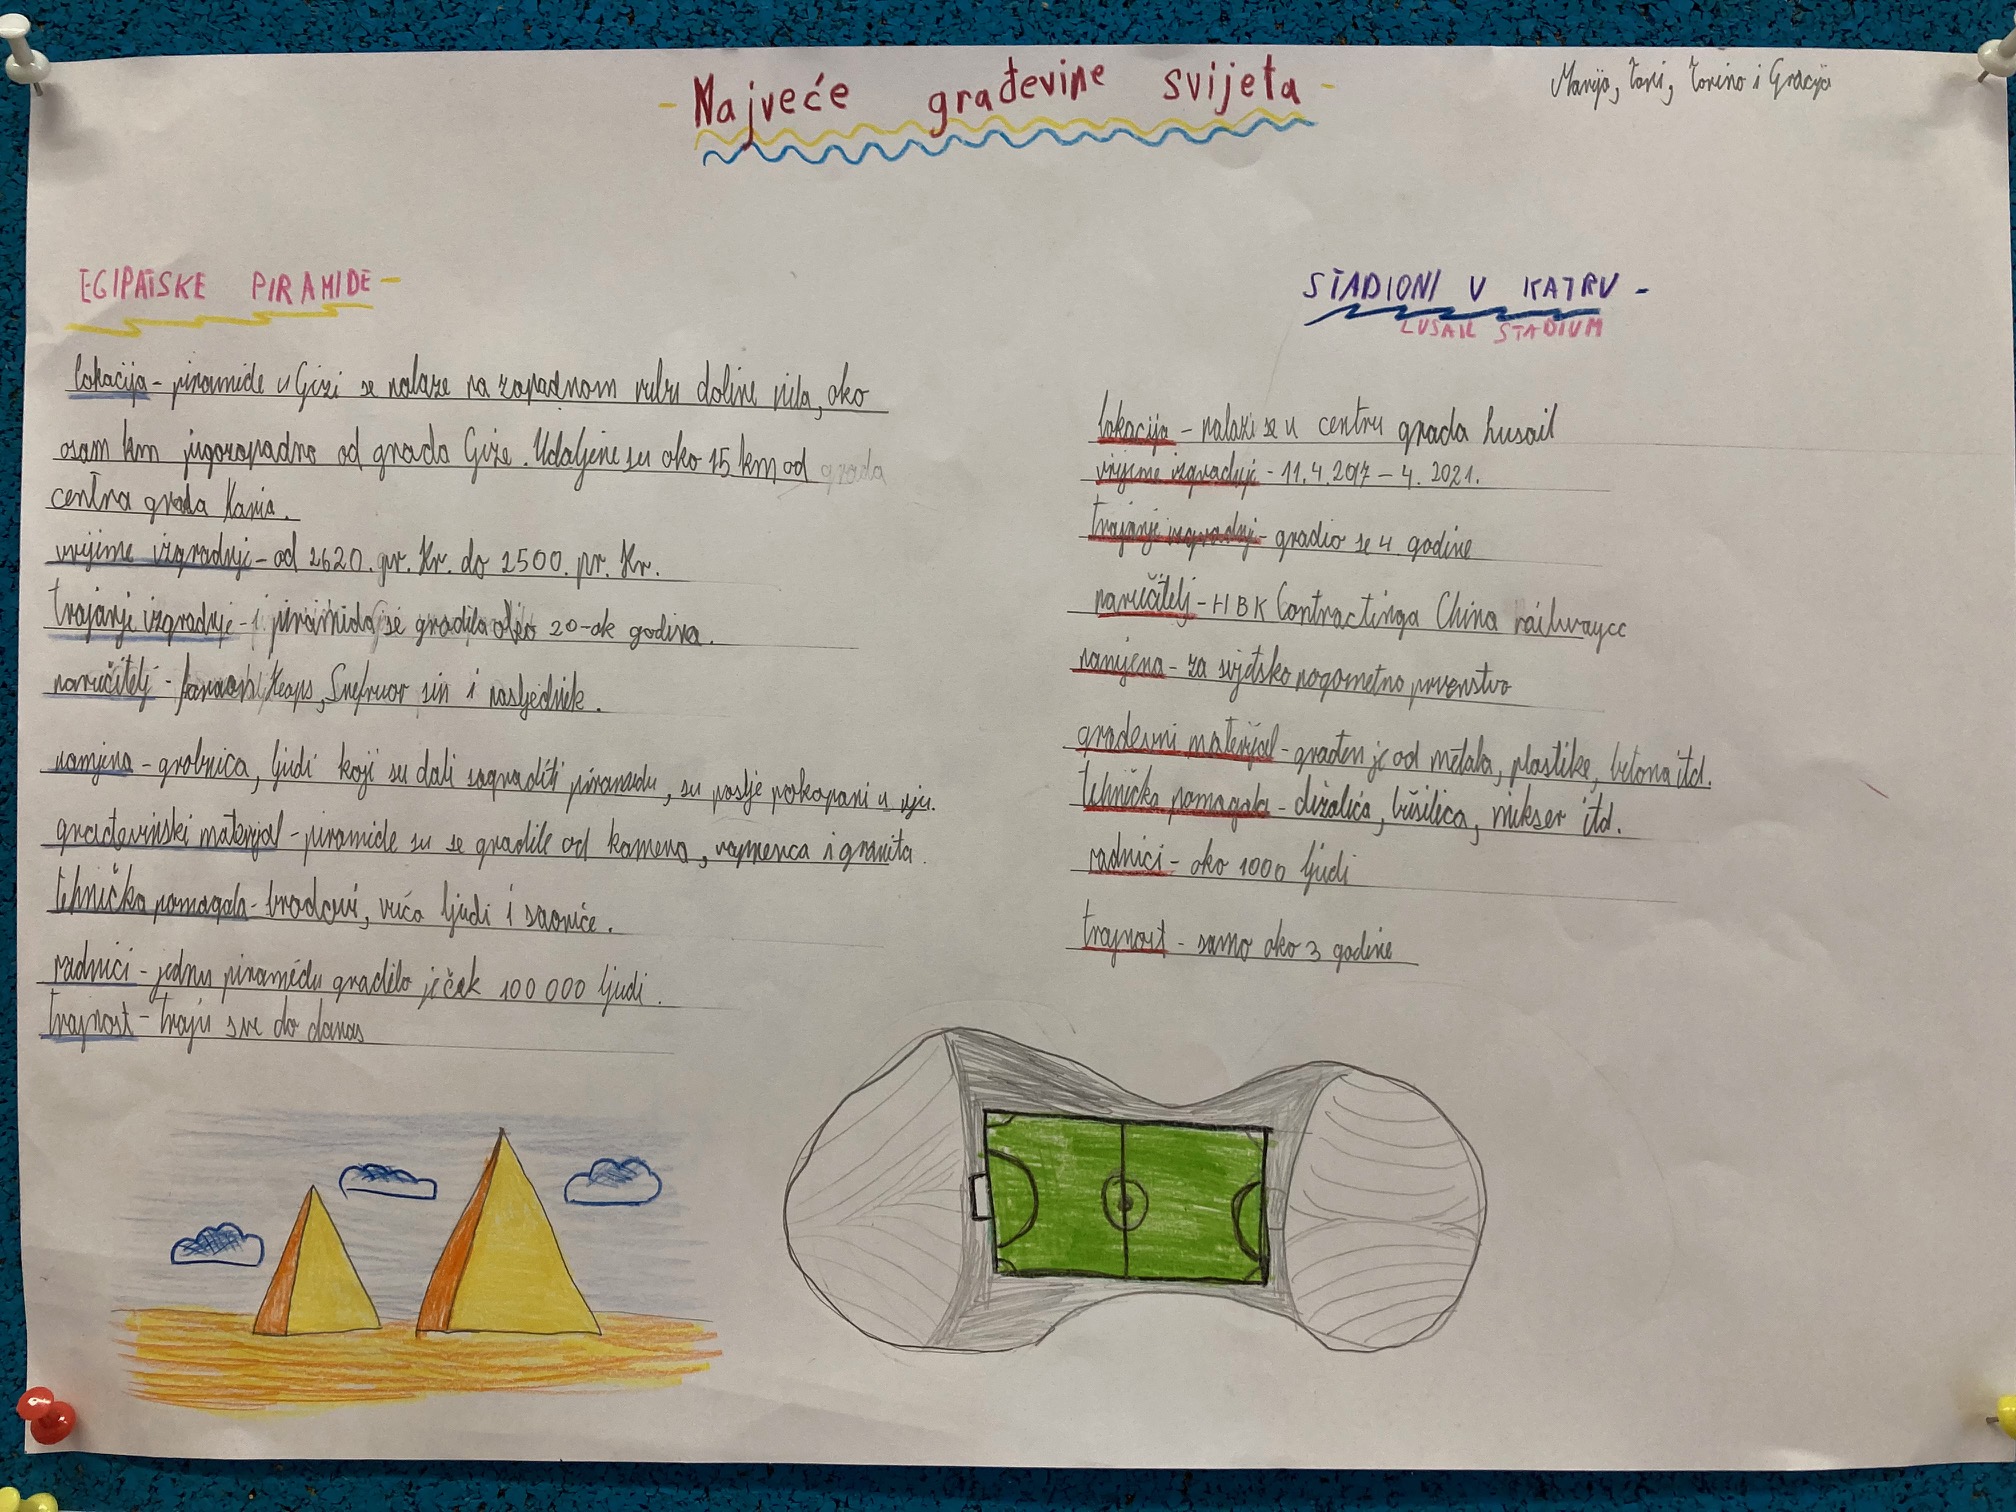 - Najveće građevine svijeta -
Marija, Toni, Tonino i Gracija
EGIPATSKE PIRAMIDE -
lokacija - piramide u Gizi se nalaze na zapadnom rubu doline nila, oko
osam km jugozapadno od grada Gize. Udaljene su oko 15 km od grada
centra grada Kaira.
vrijeme izgradnje - od 2620. pr. Kr. do 2500. pr. Kr.
trajanje izgradnje - piramida se gradila oko 20-ak godina.
naručitelj - faraon Keops, Snefruov sin i nasljednik.
namjena - grobnica, ljudi koji su dali sagraditi piramidu, su poslje pokopani u nju.
građevinski materijal - piramide su se gradile od kamena, vapnenca i granita.
tehnička pomagala - brodovi, vuća ljudi i saonice.
radnici - jednu piramidu gradilo je čak 100 000 ljudi.
trajnost - traju sve do danas
STADIONI U KATRU -
LUSAIL STADIUM
lokacija - nalazi se u centru grada Lusail
vrijeme izgradnje - 11.4.2017 - 4. 2021.
trajanje izgradnje - gradio se 4 godine
naručitelj - HBK Contractinga China railwaycc
namjena - za svjetsko nogometno prvenstvo
građevni materijal - građen je od metala, plastike, betona itd.
tehnička pomagala - dizalica, bušilica, mikser itd.
radnici - oko 1000 ljudi
trajnost - samo oko 3 godine